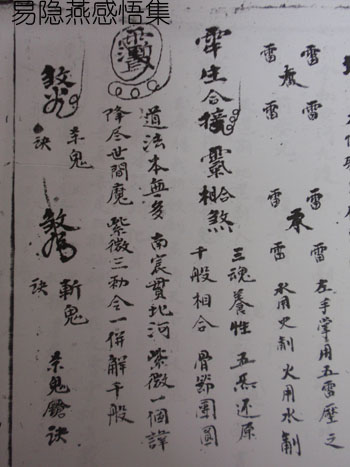 易隐燕感悟集
雷 雷
雷 雷
雷 雷
雷 雷
左手掌用五雷壓之
水用火制火用水制
生合接 靈相合煞
三魂養性 五炁还原
千般相合 骨節團圓
道法本無多 南宸貫北河 紫微一個諱
降尽世間魔 紫微三勅令一併解千般
杀鬼
訣
斬鬼
訣
杀鬼鎗訣